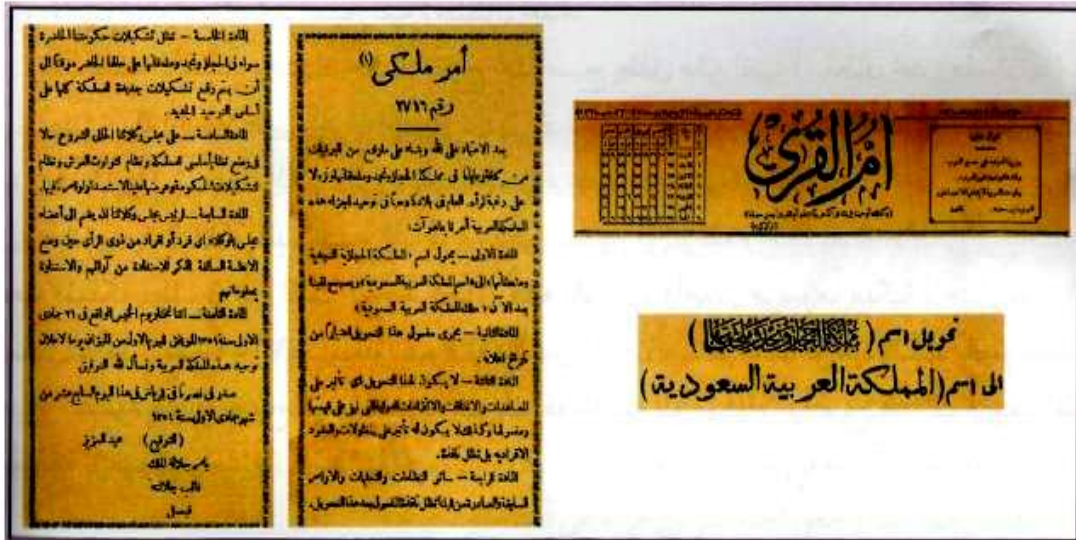 أم القرى
تحويل اسم (مملكة الحجاز ونجد وملحقاتها)
الى اسم (المملكة العربية السعودية)
أمر ملكي (١)
رقم ٢٧١٦
بعد الاعتماد على الله وبناء على مارفع من البرقيات
من كافة رعايانا في مملكة الحجاز ونجد وملحقاتها ونزولا
على رغبة الرأي العام في بلادنا وحبا في توحيد اجزاء هذه
المملكة العربية أمرنا بما هو آت:
المادة الاولى – يحول اسم «المملكة الحجازية النجدية
وملحقاتها» الى «اسم المملكة العربية السعودية» ويصبح لقبنا
بعد الآن «ملك المملكة العربية السعودية»
المادة الثانية – يجري مفعول هذا التحويل اعتبارا من
تاريخ اعلانه.
المادة الثالثة – لا يكون لهذا التحويل اي تأثير على
المعاهدات والاتفاقات والالتزامات الدولية التي تبقى على قيمتها
ومفعولها وكذلك لا يكون له تأثير على المقاولات والعقود
الافرادية بل تظل نافذة.
المادة الرابعة – سائر النظامات والتعليمات والاوامر
السابقة والصادرة من قبلنا تظل نافذة المفعول بعد هذا التحويل.
المادة الخامسة – تظل تشكيلات حكومتنا الحاضرة
سواء في الحجاز ونجد وملحقاتها على حالها الحاضر موقتا الى
أن يتم وضع تشكيلات جديدة للمملكة كلها على
أساس التوحيد الجديد.
المادة السادسة – على مجلس وكلائنا الحالي الشروع حالا
في وضع نظام أساسي للمملكة ونظام لتوارث العرش ونظام
لتشكيلات الحكومة وعرضها علينا لاستصدار أوامرنا فيها.
المادة السابعة – لرئيس مجلس وكلائنا أن يضم الى أعضاء
مجلس الوكلاء اي فرد أو افراد من ذوي الرأي حين وضع
الانظمة السالفة الذكر للاستفادة من آرائهم والاستنارة
بمعلوماتهم
المادة الثامنة – اننا نختار يوم الخميس الواقع في ٢١ جمادى
الاولى سنة ١٣٥١ الموافق لليوم الاول من الميزان يوما لاعلان
توحيد هذه المملكة العربية ونسأل الله التوفيق
صدر في قصرنا في الرياض في هذا اليوم السابع عشر من
شهر جمادى الاولى سنة ١٣٥١
(التوقيع) عبد العزيز
بامر جلالة الملك
نائب جلالته
فيصل